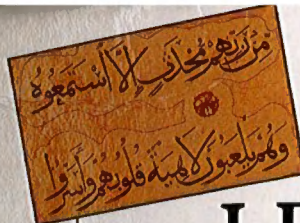 مِنْ رَبِّهِمْ مُحْدَثٍ إِلَّا اسْتَمَعُوهُ
وَهُمْ يَلْعَبُونَ لَاهِيَةً قُلُوبُهُمْ وَأَسَرُّوا